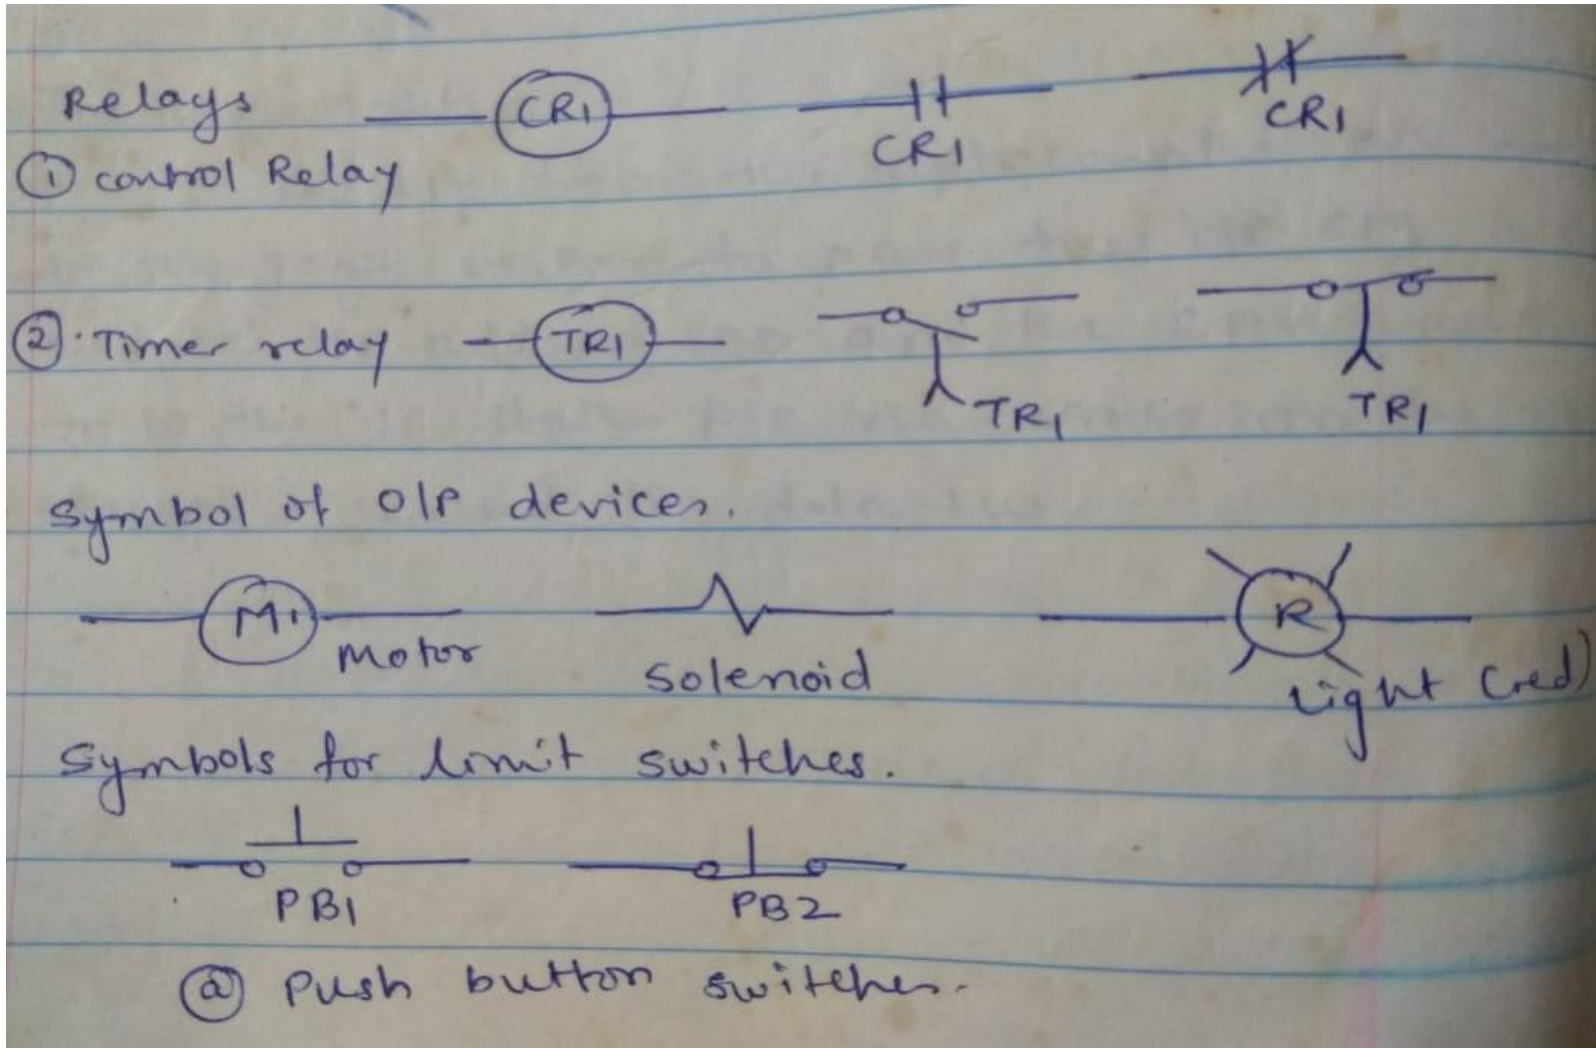 Relays
CR1 CR1 CR1
① control Relay
②. Timer relay TR1 TR1 TR1
Symbol of O/P devices.
M1 Motor Solenoid R Light (red)
Symbols for limit switches.
PB1 PB2
ⓐ Push button switches.